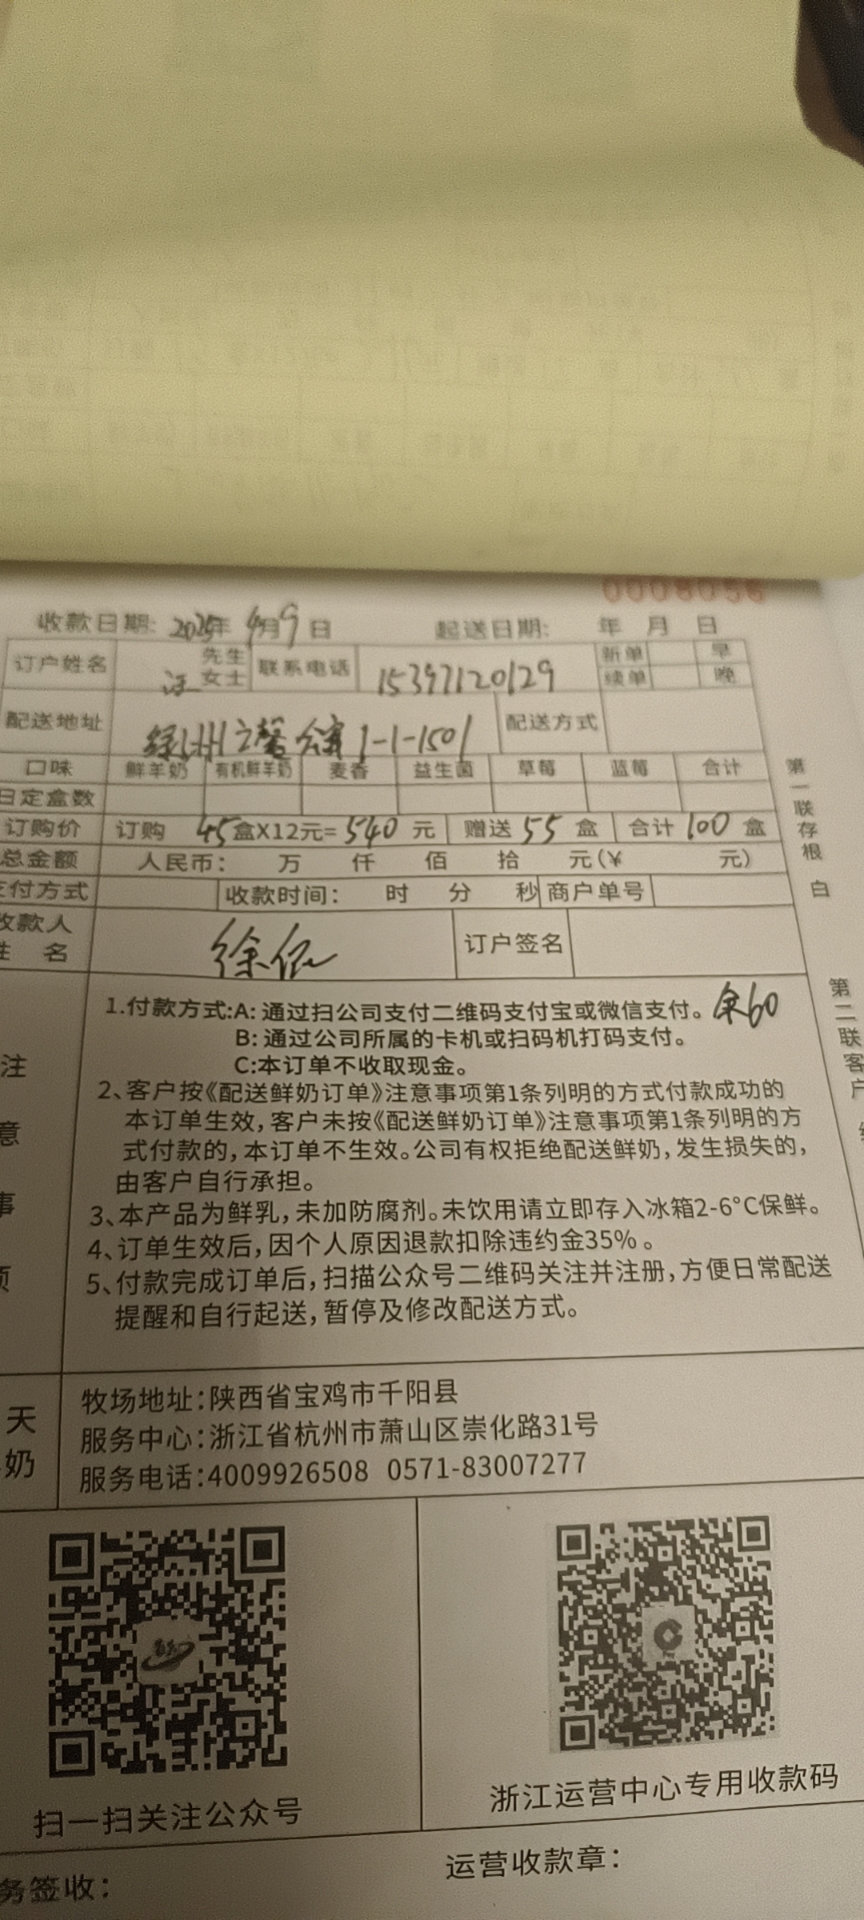 0008056
收款日期: 2025年 4月9日 起送日期: 年 月 日
订户姓名 汪 先生 女士 联系电话 15397120129 新单 续单 早 晚
配送地址 绿洲之馨 1-1-1501 配送方式
口味 鲜羊奶 有机鲜羊奶 麦香 益生菌 草莓 蓝莓 合计
日定盒数
订购价 订购 45盒X12元=540元 赠送 55 盒 合计 100 盒
总金额 人民币: 万 仟 佰 拾 元(¥ 元)
支付方式 收款时间: 时 分 秒 商户单号
收款人
姓 名 徐依 订户签名
第一联存根 白
第二联客户
注意事项
1.付款方式:A: 通过扫公司支付二维码支付宝或微信支付。 余60
B: 通过公司所属的卡机或扫码机打码支付。
C:本订单不收取现金。
2、客户按《配送鲜奶订单》注意事项第1条列明的方式付款成功的
本订单生效，客户未按《配送鲜奶订单》注意事项第1条列明的方
式付款的，本订单不生效。公司有权拒绝配送鲜奶，发生损失的，
由客户自行承担。
3、本产品为鲜乳，未加防腐剂。未饮用请立即存入冰箱2-6°C保鲜。
4、订单生效后，因个人原因退款扣除违约金35%。
5、付款完成订单后，扫描公众号二维码关注并注册，方便日常配送
提醒和自行起送，暂停及修改配送方式。
天
奶
牧场地址:陕西省宝鸡市千阳县
服务中心:浙江省杭州市萧山区崇化路31号
服务电话:4009926508 0571-83007277
扫一扫关注公众号
浙江运营中心专用收款码
务签收:
运营收款章: